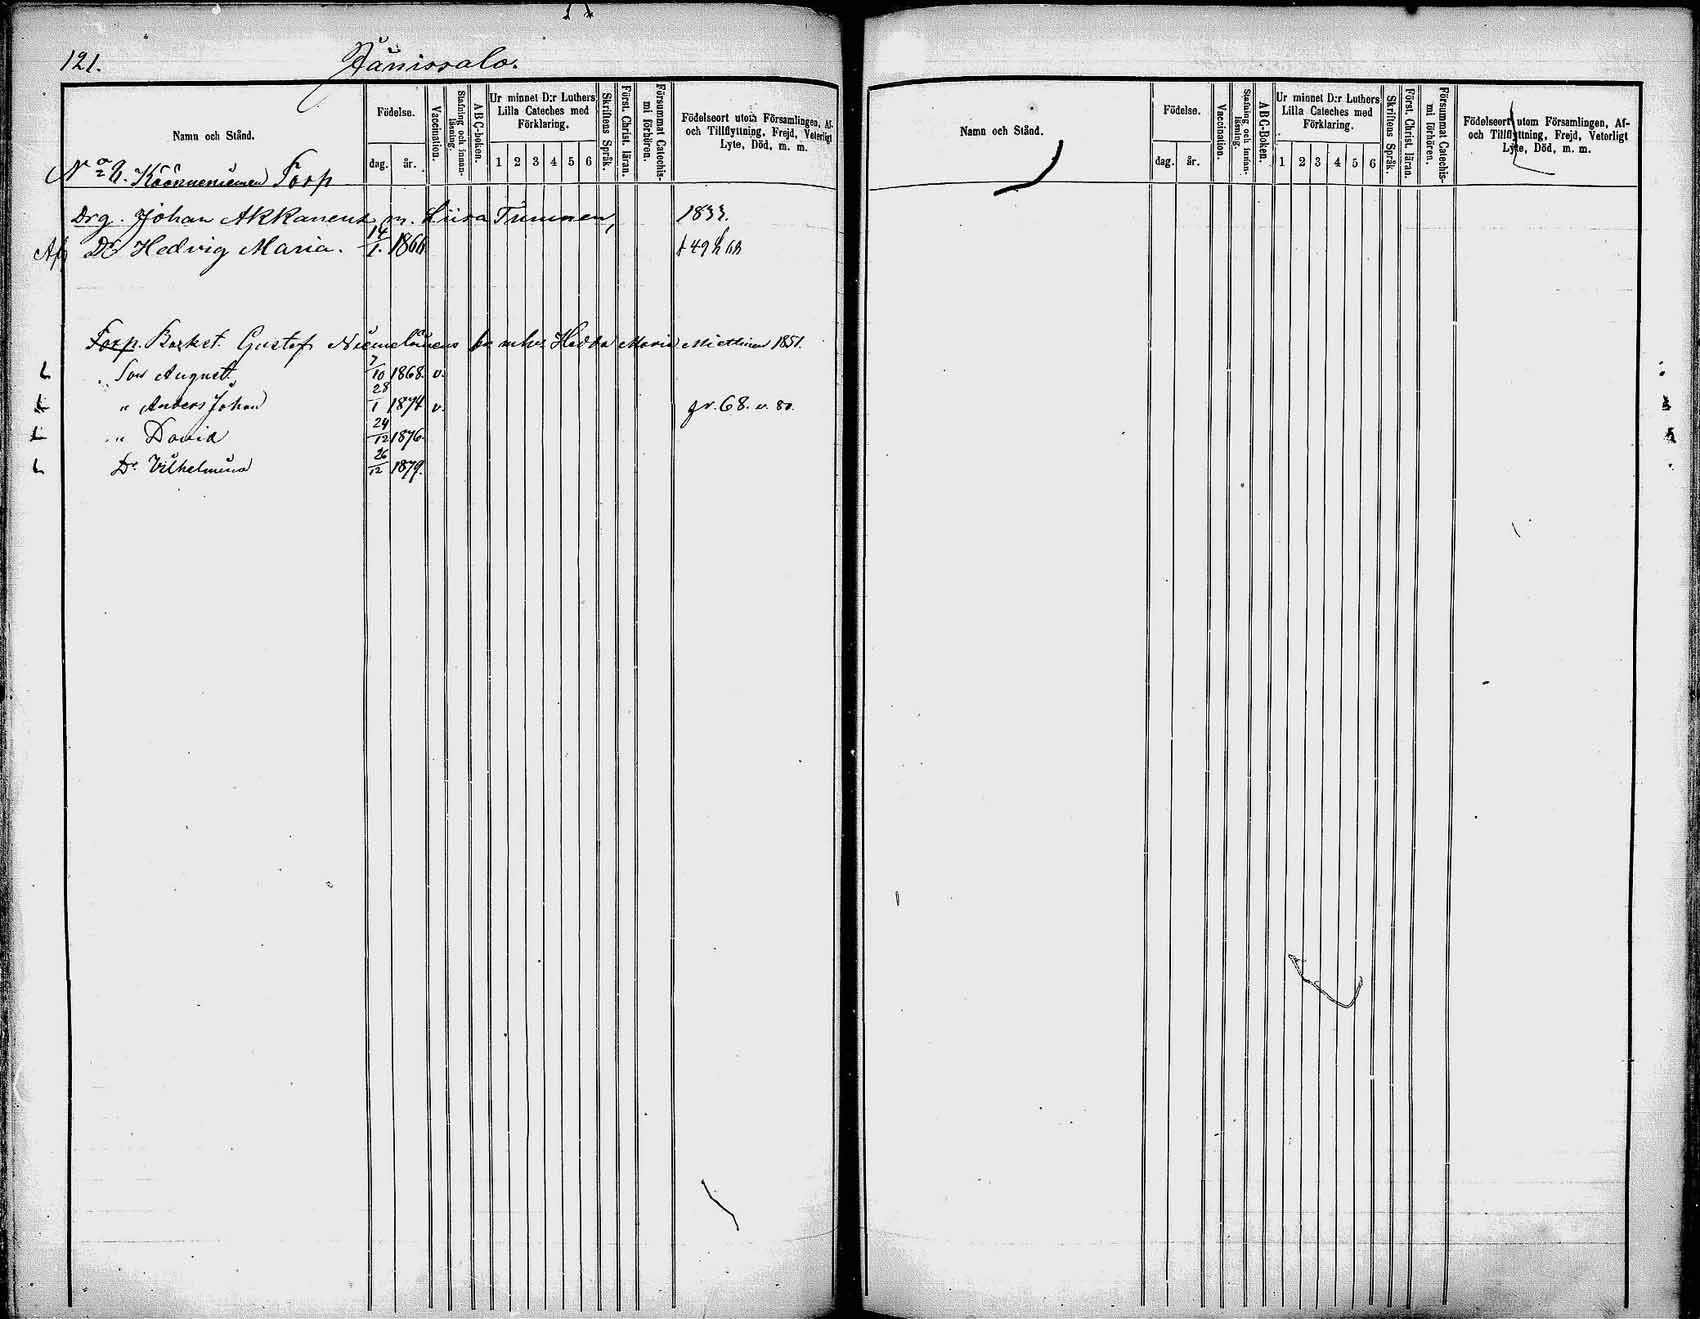 121. Jänissalo.
Namn och Stånd.
Födelse.
dag. år.
Vaccination.
Stafning och innan-läsning.
ABC-boken.
Ur minnet D:r Luthers Lilla Cateches med Förklaring.
1 2 3 4 5 6
Skriftens Språk.
Först. Christ. läran.
Försummat Catechis-mi förhören.
Födelseort utom Församlingen, Af- och Tillflyttning, Frejd, Veterligt Lyte, Död, m. m.
Torp
Drg. Johan Akkanens m. Liisa Timonen, 1833.
Dr Hedvig Maria. 14/1. 1866
Torp. Gustaf Hedda Maria Miettinen 1851.
" Son August. 7/10 1868. v.
" Anders Johan 28/1 1874 v. fr. 68. v. 80.
" David 24/12 1876.
Dr Vilhelmina 26/12 1879.
Namn och Stånd.
Födelse.
dag. år.
Vaccination.
Stafning och innan-läsning.
ABC-boken.
Ur minnet D:r Luthers Lilla Cateches med Förklaring.
1 2 3 4 5 6
Skriftens Språk.
Först. Christ. läran.
Försummat Catechis-mi förhören.
Födelseort utom Församlingen, Af- och Tillflyttning, Frejd, Veterligt Lyte, Död, m. m.